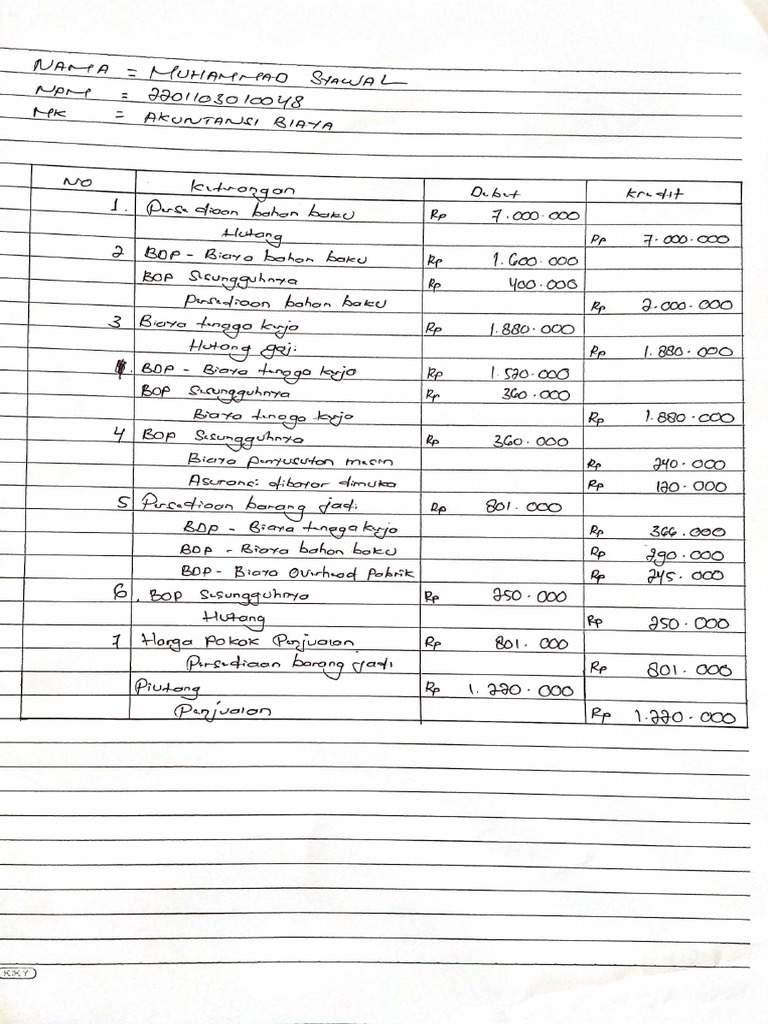 NAMA = MUHAMMAD SYAWAL
NPM = 2201103010048
MK = AKUNTANSI BIAYA
NO Keterangan Debet Kredit
1. Persediaan bahan baku Rp 7.000.000
Hutang Rp 7.000.000
2 BDP - Biaya bahan baku Rp 1.600.000
BOP Sesungguhnya Rp 400.000
Persediaan bahan baku Rp 2.000.000
3 Biaya tenaga kerja Rp 1.880.000
Hutang gaji Rp 1.880.000
. BDP - Biaya tenaga kerja Rp 1.520.000
BOP Sesungguhnya Rp 360.000
Biaya tenaga kerja Rp 1.880.000
4 BOP Sesungguhnya Rp 360.000
Biaya penyusutan mesin Rp 240.000
Asuransi dibayar dimuka Rp 120.000
5 Persediaan barang jadi Rp 801.000
BDP - Biaya tenaga kerjo Rp 366.000
BDP - Biaya bahan baku Rp 290.000
BDP - Biaya Overhead Pabrik Rp 245.000
6 . BOP Sesungguhnya Rp 250.000
Hutang Rp 250.000
7 Harga Pokok Penjualan Rp 801.000
Persediaan barang jadi Rp 801.000
Piutang Rp 1.220.000
Penjualan Rp 1.220.000
KKY